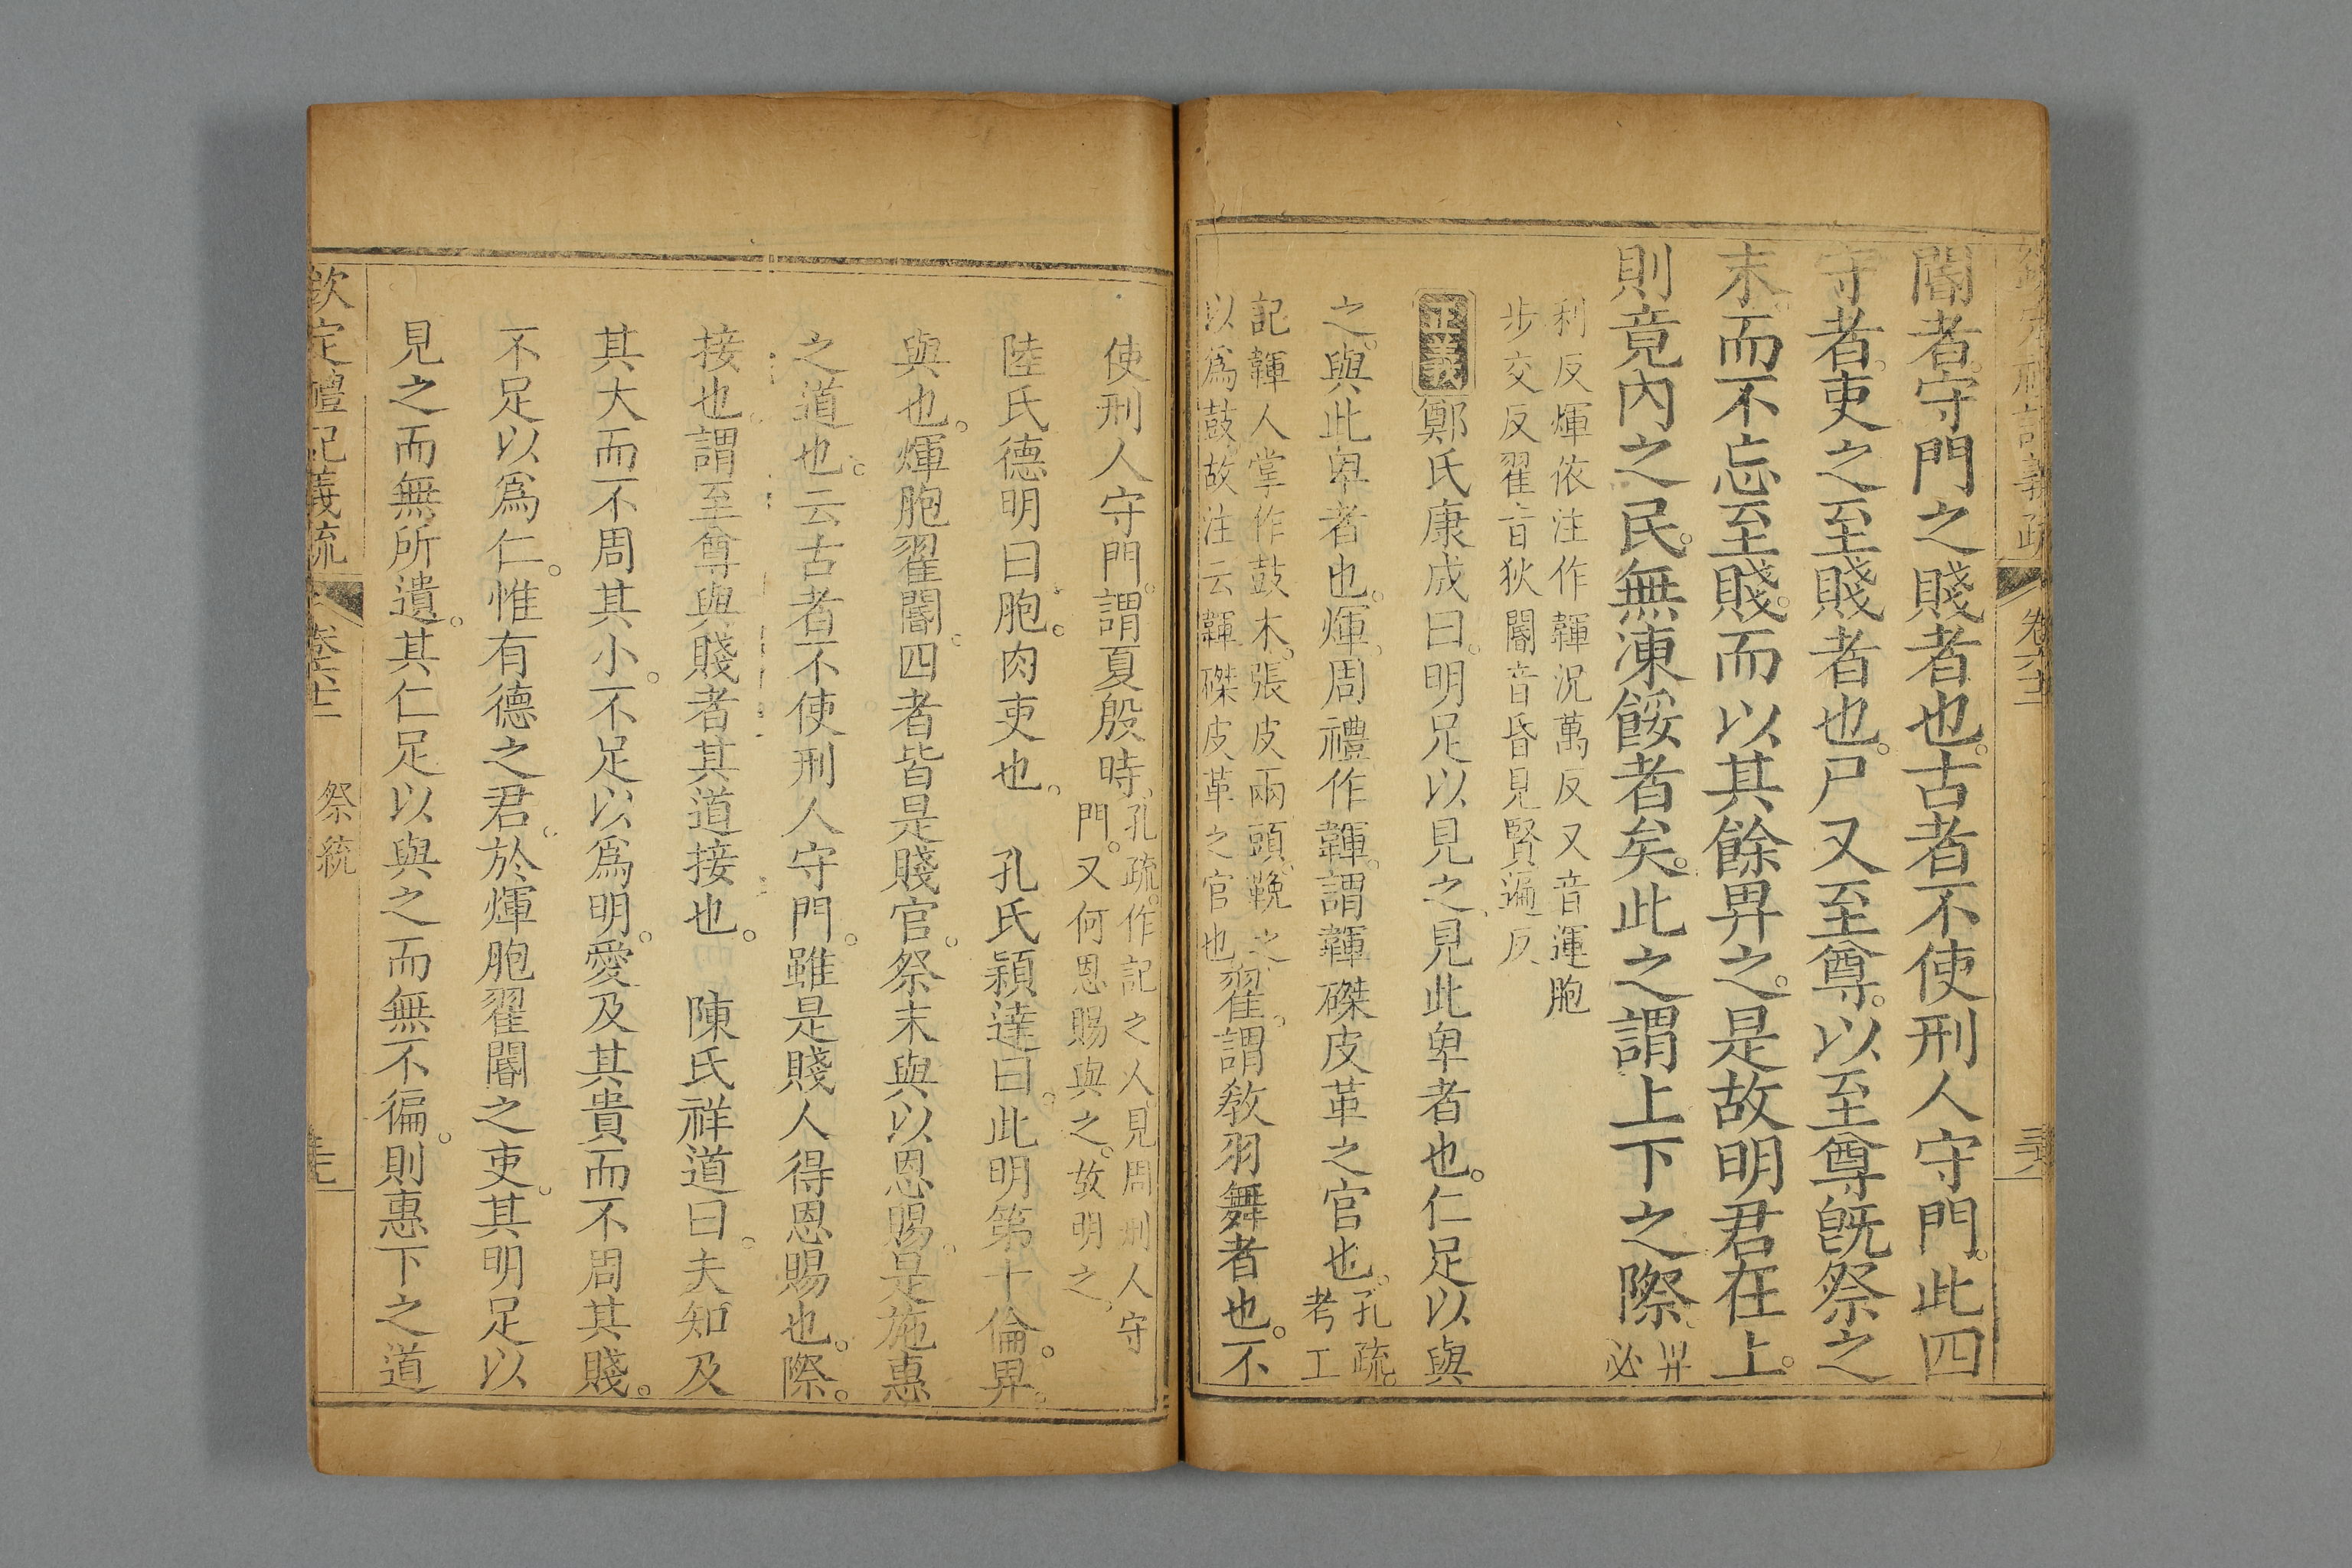 欽定禮記義疏 卷六十二
閽者。守門之賤者也。古者不使刑人守門。此四
守者。吏之至賤者也。尸又至尊。以至尊旣祭之
末。而不忘至賤。而以其餘畀之。是故明君在上。
則竟內之民。無凍餒者矣。此之謂上下之際、畀必
利反煇依注作韗況萬反又音運胞
步交反翟音狄閽音昏見賢遍反
正義鄭氏康成曰。明足以見之、見此卑者也。仁足以與
之。與此卑者也。煇、周禮作韗。謂韗磔皮革之官也。孔疏。考工
記韗人掌作鼓木。張皮兩頭、鞔之、
以爲鼓。故注云韗磔皮革之官也
翟。謂敎羽舞者也。不
使刑人守門。謂夏殷時、孔疏。作記之人、見周刑人守
門。又何恩賜與之。故明之、
陸氏德明曰胞。肉吏也。 孔氏穎達曰。此明第十倫。畀。
與也。煇胞翟閽。四者皆是賤官。祭末與以恩賜。是施惠
之道也。云古者不使刑人守門。雖是賤人得恩賜也。際。
接也。謂至尊與賤者其道接也。 陳氏祥道曰。夫知及
其大而不周其小。不足以爲明。愛及其貴而不周其賤。
不足以爲仁。惟有德之君。於煇胞翟閽之吏。其明足以
見之而無所遺。其仁足以與之而無不徧。則惠下之道
欽定禮記義疏 卷六十二 祭統